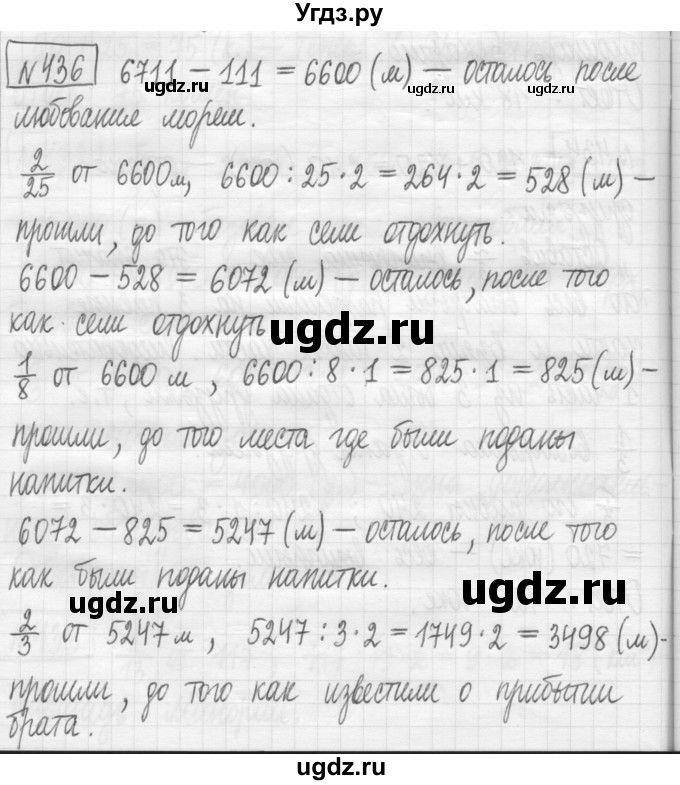 Угдз.ру
№436 6711 − 111 = 6600 (м) — осталось после
ugdz.ru ugdz.ru
любование морем.
2/25 от 6600 м, 6600 : 25 · 2 = 264 · 2 = 528 (м) −
прошли, до того как сели отдохнуть.
6600 − 528 = 6072 (м) — осталось, после того
как сели отдохнуть
ugdz.ru
1/8 от 6600 м, 6600 : 8 · 1 = 825 · 1 = 825 (м) −
прошли, до того места где были поданы
напитки.
6072 − 825 = 5247 (м) — осталось, после того
как были поданы напитки.
ugdz.ru ugdz.ru
2/3 от 5247 м, 5247 : 3 · 2 = 1749 · 2 = 3498 (м) -
прошли, до того как известили о прибытии
брата.
ugdz.ru